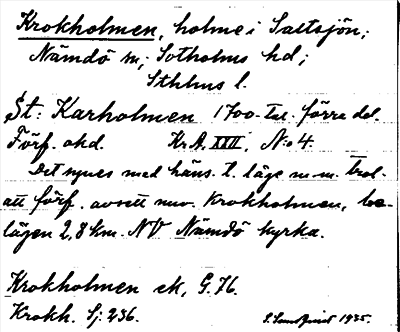 Krokholmen, holme i Saltsjön;
Nämdö sn; Sotholms hd;
Sthlms l.
St: Karholmen 1700-tal. förra del.
Förf. okd. Kr.A. XXII, N:o 4.
Det synes med häns. t. läge m.m. trol.
att förf. avsett nuv. Krokholmen, be-
lägen 2,8 km. NV Nämdö kyrka.
Krokholmen ek, G. 76.
Krokh. Sj: 236.
1935.